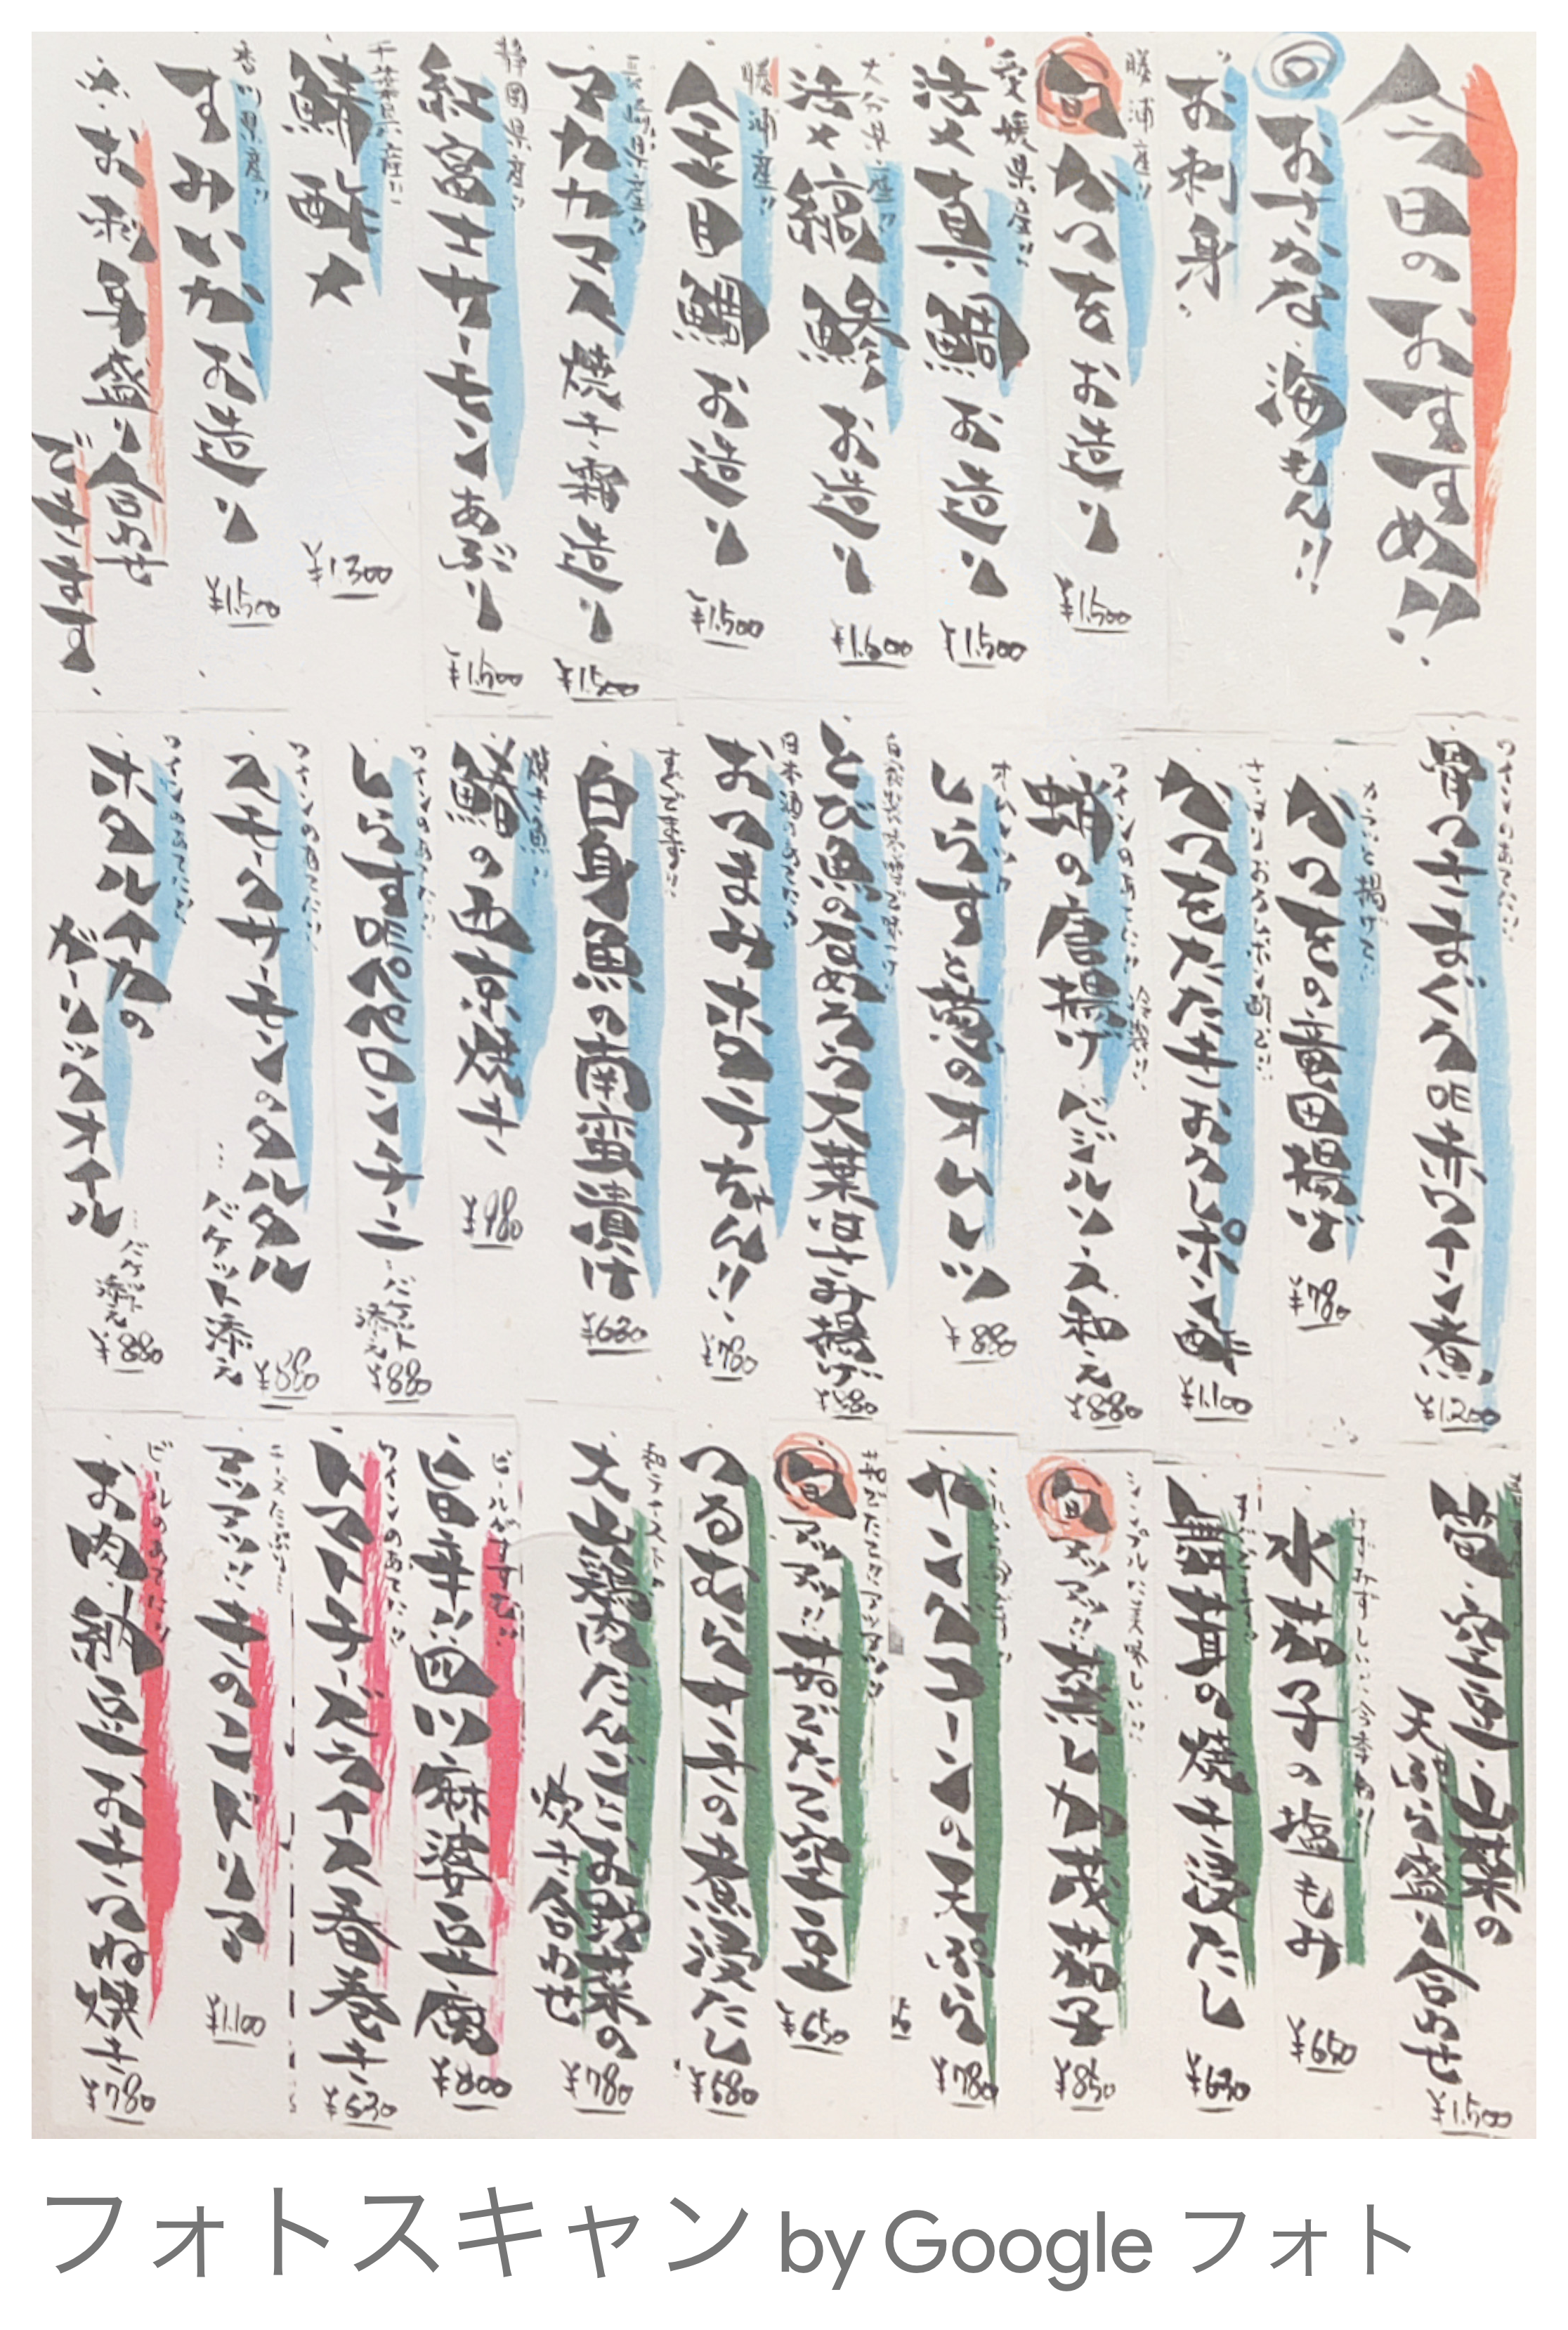 今日のおすすめ!!
おさかな 海もん!!
お刺身
勝浦産!!
旬 かつを お造り
¥1.500
愛媛県産!!
活〆真鯛 お造り
¥1.500
大分県産!!
活〆縞鯵 お造り
¥1.600
勝浦産!!
金目鯛 お造り
¥1.500
長崎県産!!
マカカマス 焼き霜造り
¥1.500
静岡県産!!
紅富士サーモン あぶり
¥1.500
千葉県産!!
鯖酢〆
¥1.300
香川県産!!
すみいか お造り
¥1.500
お刺身盛り合わせ
できます
ワインのあてに!!
骨つきまぐろ DE 赤ワイン煮
¥1.200
カラッと揚げて!!
かつをの竜田揚げ
¥780
かつをたたきおろしポン酢
¥1.100
ワインのあてに!!
蛸の唐揚げ バジルソース和え
¥880
しらすと葱のオムレツ
¥880
とび魚のなめろう大葉はさみ揚げ
¥880
日本酒のあてに!!
おつまみホタテちゃん!!
¥780
すぐでます!!
白身魚の南蛮漬け
¥630
焼き魚!!
鰆の西京焼き
¥980
ワインのあてに!!
しらすDEペペロンチーニ
バケット添え
¥880
ワインのあてに!!
スモークサーモンのタルタル
…バケット添え
¥880
ワインのあてに!!
ホタルイカの
ガーリックオイル
…バケット添え
¥880
筍・空豆・山菜の
天ぷら盛り合わせ
¥1.500
水茄子の塩もみ
¥650
すぐでます!!
舞茸の焼き浸だし
¥630
シンプルに美味しい!!
旬 アツアツ!! 蒸し加茂茄子
¥850
ヤングコーンの天ぷら
¥780
旬 アツアツ!! 茹でたて空豆
¥650
つるむらさきの煮浸だし
¥680
和テースト
大山鶏肉だんごとお野菜の
炊き合わせ
¥780
ビールがすすむ!!
旨辛!! 四川麻婆豆腐
¥800
ワインのあてに!!
トマトチーズライス春巻き
¥630
チーズたっぷり…
アツアツ!! きのこドリア
¥1.100
ビールのあてに!!
お肉納豆おきつね焼き
¥780
フォトスキャン by Google フォト